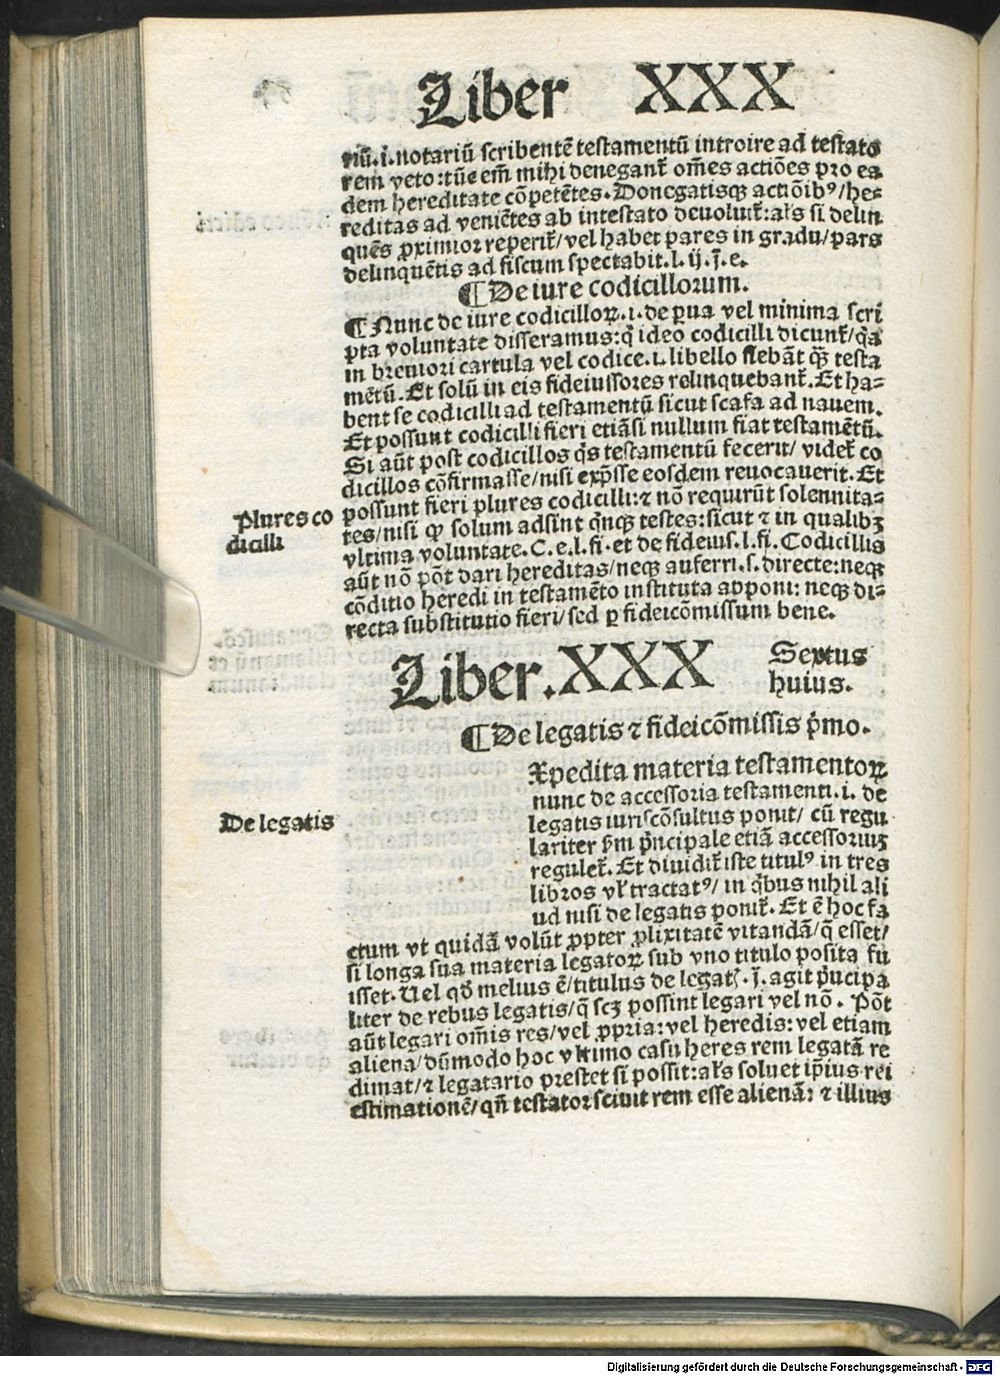 Liber XXX
riū.i.notariū scribentē testamentū introire ad testato
rem veto:tūc em̄ mihi denegant᷑ om̄es actiōes pro ea
dem hereditate cōpetētes. Donegatisqꝫ actiōibꝰ/he-
reditas ad veniētes ab intestato deuoluit᷑:als̄ si delin
quēs ꝓximior reperit᷑/vel habet pares in gradu/pars
delinquētis ad fiscum spectabit.l.ij.j̄.e.
¶De iure codicillorum.
¶Nunc de iure codicilloꝝ.i.de ꝑua vel minima scri
pta voluntate disseramus:q̄ ideo codicilli dicunt᷑/qꝛ
in breuiori cartula vel codice.i.libello fiebāt qȝ̄ testa
mētū. Et solū in eis fideiussores relinquebant᷑. Et ha-
bent se codicilli ad testamentū sicut scafa ad nauem.
Et possunt codicilli fieri etiāsi nullum fiat testamētū.
Si aūt post codicillos q̄s testamentū fecerit/ videt᷑ co
dicillos cōfirmasse/nisi exp̄sse eosdem reuocauerit. Et
possunt fieri plures codicilli:⁊ nō requirūt solennita-
tes/nisi ꝙ solum adsint q̄nqꝫ testes:sicut ⁊ in qualibꝫ
vltima voluntate.C.e.l.fi.et de fideius.l.fi. Codicillis
aūt nō pōt dari hereditas/neqꝫ auferri.s.directe:neqꝫ
cōditio heredi in testamēto instituta apponi: neqꝫ di-
recta substitutio fieri/sed ꝑ fideicōmissum bene.
Plures co
dicilli
Liber.XXX
Sextus
huius.
¶De legatis ⁊ fideicōmissis p̄mo.
Xpedita materia testamentoꝝ
nunc de accessoria testamenti.i. de
legatis iuriscōsultus ponit/ cū regu
lariter ẜm p̄ncipale etiā accessoriuꝫ
regulet᷑. Et diuidit᷑ iste titulꝰ in tres
libros vl̄ tractatꝰ/ in q̄bus nihil ali
ud nisi de legatis ponit᷑. Et ē hoc fa
ctum vt quidā volūt ꝓpter ꝓlixitatē vitandā/q̄ esset/
si longa sua materia legatoꝝ sub vno titulo posita fu
isset. Uel qd̄ melius ē/titulus de legat̄.j̄.agit p̄ncipa
liter de rebus legatis/q̄ scꝫ possint legari vel nō. Pōt
aūt legari om̄is res/vel ꝓpria:vel heredis:vel etiam
aliena/dūmodo hoc vltimo casu heres rem legatā re
dimat/⁊ legatario prestet si possit:als̄ soluet ip̄ius rei
estimationē/qn̄ testator sciuit rem esse alienā: ⁊ illius
De legatis
Digitalisierung gefördert durch die Deutsche Forschungsgemeinschaft - DFG